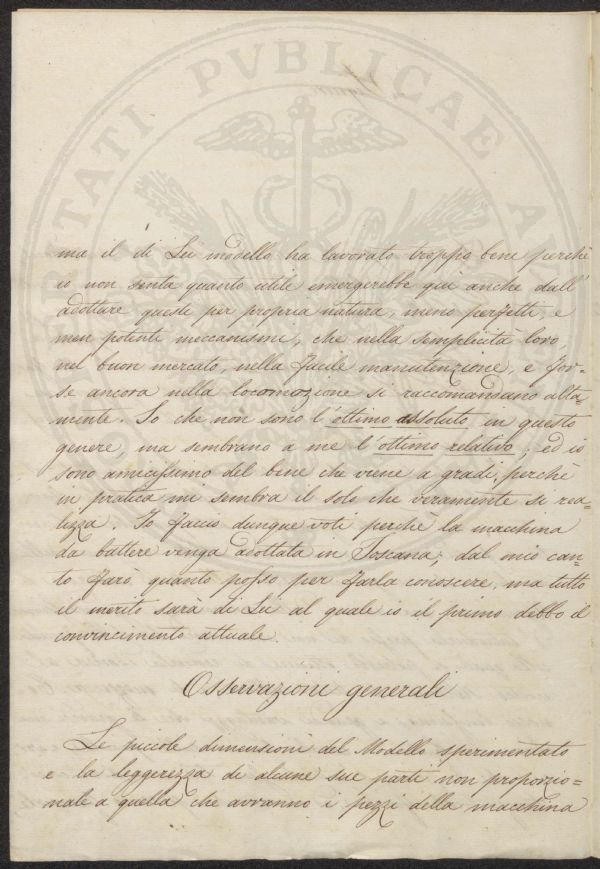 ma il di Lei modello ha lavorato troppo bene perchè
io non senta quanto utile emergerebbe quì anche dall'
adottare questi per propria natura, meno perfetti, e
men potenti meccanismi, che nella semplicità loro,
nel buon mercato, nella facile manutenzione, e for=
se ancora nella locomozione si raccomandano alta=
mente. So che non sono l'ottimo assoluto in questo
genere, ma sembrano a me l'ottimo relativo, ed io
sono amicissimo del bene che viene a gradi, perchè
in pratica mi sembra il solo che veramente si rea=
lizza. Io faccio dunque voti perchè la macchina
da battere venga adottata in Toscana; dal mio can=
to farò quanto posso per farla conoscere, ma tutto
il merito sarà di Lei al quale io il primo debbo il
convincimento attuale.
Osservazioni generali
Le piccole dimensioni del Modello sperimentato
e la leggerezza di alcune sue parti non proporzio=
nale a quella che avranno i pezzi della macchina
PVBLICAE